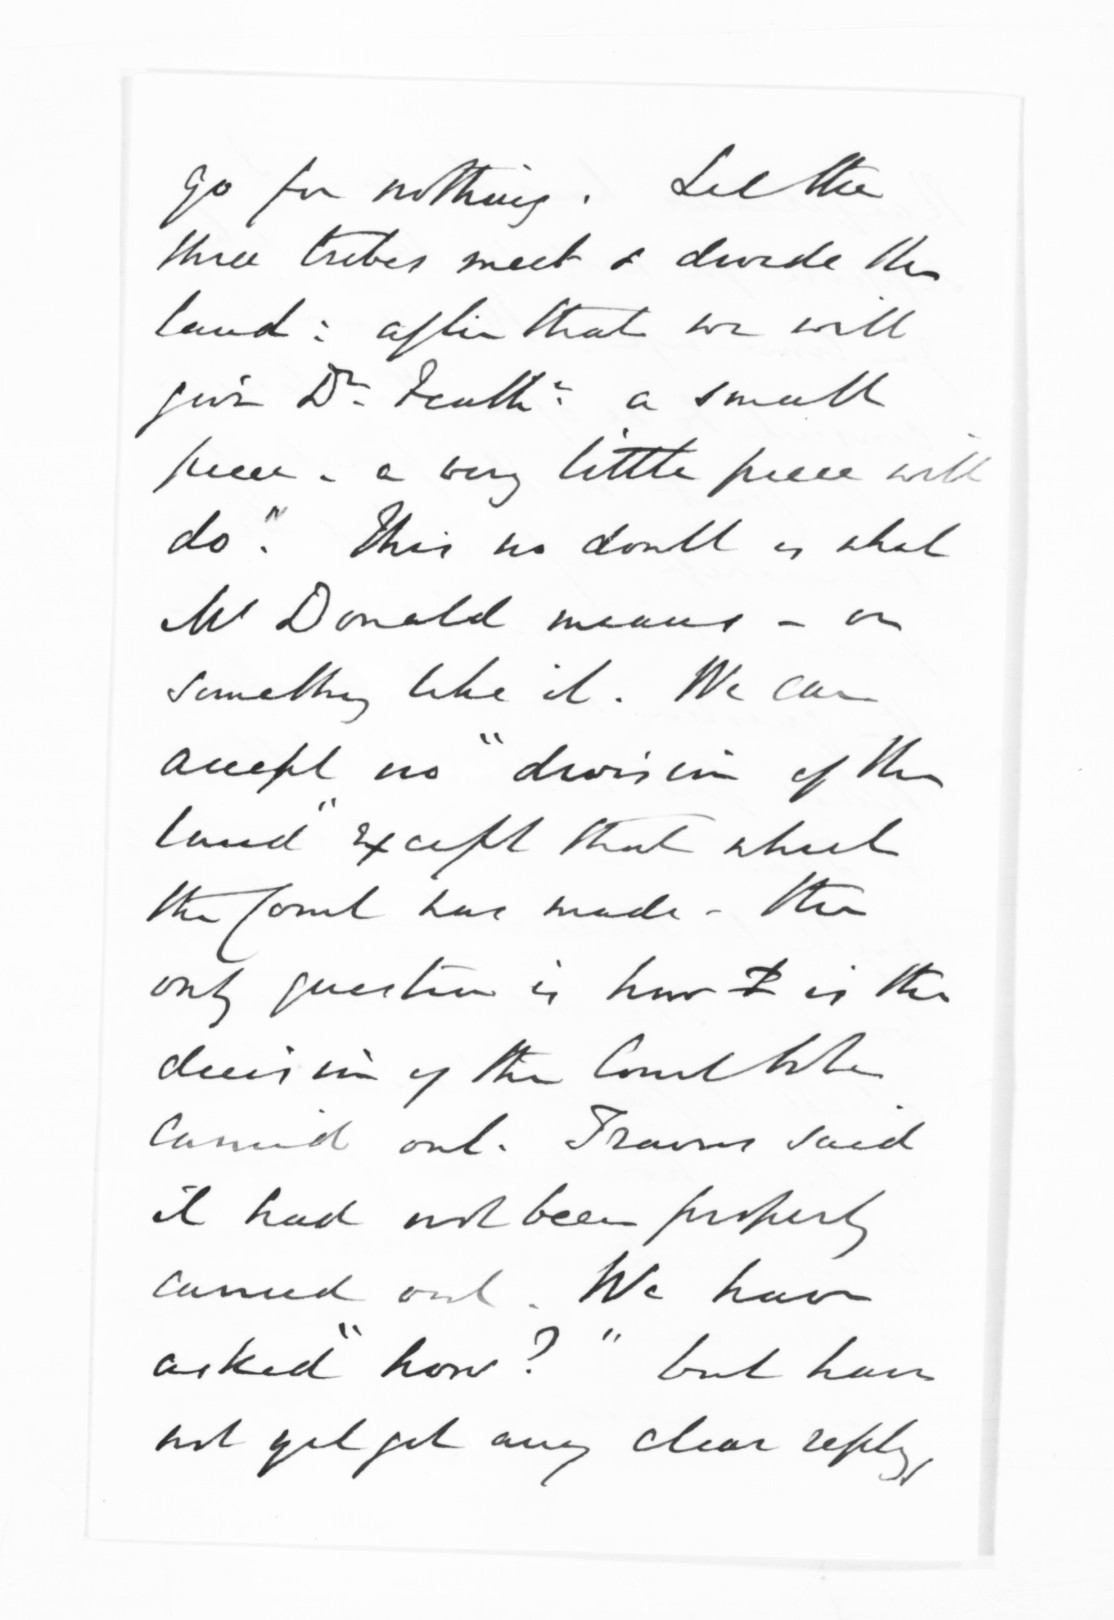 go for nothing. Let the
three tribes meet & divide the
land: after that we will
give Dr. Feath: a small
piece - a very little piece will
do". This no doubt is what
McDonald means - or
something like it. We can
accept no "division of the
land" except that which
the Court has made - the
only question is how is the
decision of the Court to be
carried out. Travers said
it had not been properly
carried out. We have
asked "how?" but have
not yet got any clear reply,